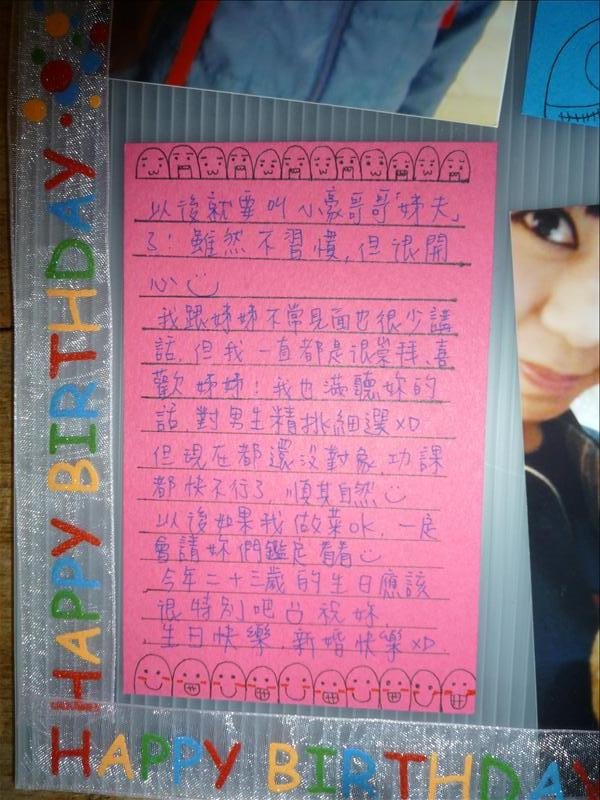 HAPPY BIRTHDAY
以後就要叫小豪哥哥「姊夫」
了！雖然不習慣,但很開
心
我跟姊姊不常見面也很少講
話,但我一直都是很崇拜、喜
歡姊姊！我也滿聽妳的
話,對男生精挑細選XD
但現在都還沒對象,功課
都快不行了,順其自然
以後如果我做菜OK,一定
會請妳們鑑定看看
今年二十三歲的生日應該
很特別吧 祝妳
生日快樂,新婚快樂XD
HAPPY BIRTHDA